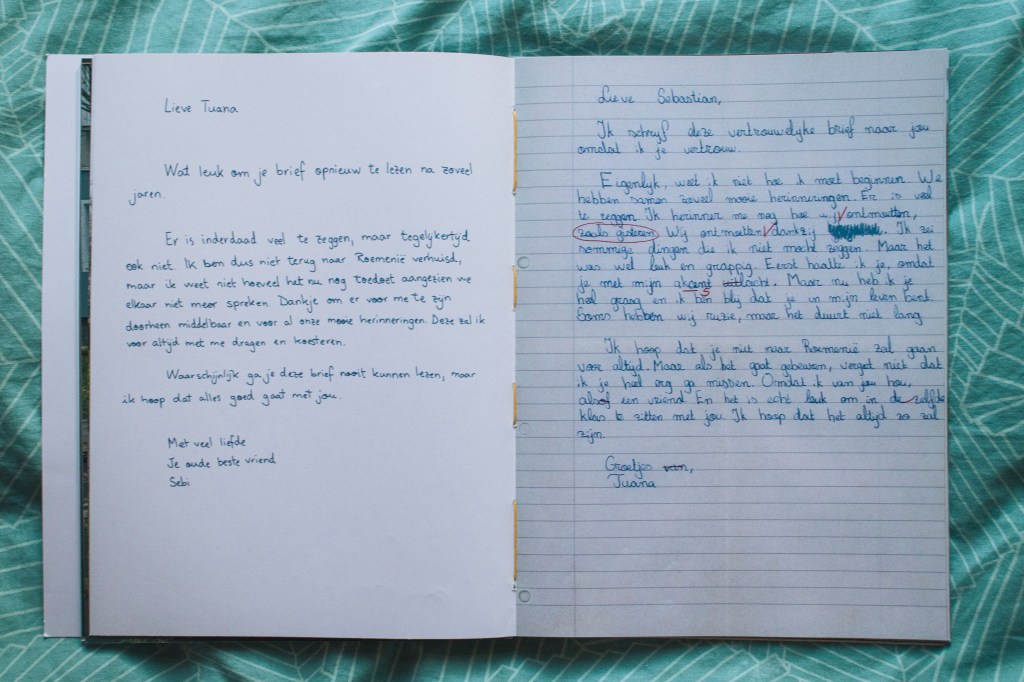 Lieve Tuana
Wat leuk om je brief opnieuw te lezen na zoveel
jaren.
Er is inderdaad veel te zeggen, maar tegelijkertijd
ook niet. Ik ben dus niet terug naar Roemenië verhuisd,
maar ik weet niet hoeveel het nu nog toedoet aangezien we
elkaar niet meer spreken. Dankje om er voor me te zijn
doorheen middelbaar en voor al onze mooie herinneringen. Deze zal ik
voor altijd met me dragen en koesteren.
Waarschijnlijk ga je deze brief nooit kunnen lezen, maar
ik hoop dat alles goed gaat met jou.
Met veel liefde
Je oude beste vriend
Sebi
Lieve Sebastian,
Ik schrijf deze vertrouwelijke brief naar jou
omdat ik je vertrouw.
Eigenlijk, weet ik niet hoe ik moet beginnen. We
hebben samen zoveel mooie herinneringen. Er is veel
te zeggen. Ik herinner me nog hoe wij ontmoetten,
zoals gisteren. Wij ontmoetten dankzij. Ik zei
sommige dingen die ik niet mocht zeggen. Maar het
was wel leuk en grappig. Eerst haatte ik je, omdat
je met mijn akcent lacht. Maar nu heb ik je
heel graag en ik ben blij dat je in mijn leven bent.
Soms hebben wij ruzie, maar het duurt niet lang.
Ik hoop dat je niet naar Roemenië zal gaan
voor altijd. Maar als het gaat gebeuren, vergeet niet dat
ik je heel erg ga missen. Omdat ik van jou hou,
als een vriend. En het is echt leuk om in de zelfde
klas te zitten met jou. Ik hoop dat het altijd zo zal
zijn.
Groetjes van,
Tuana